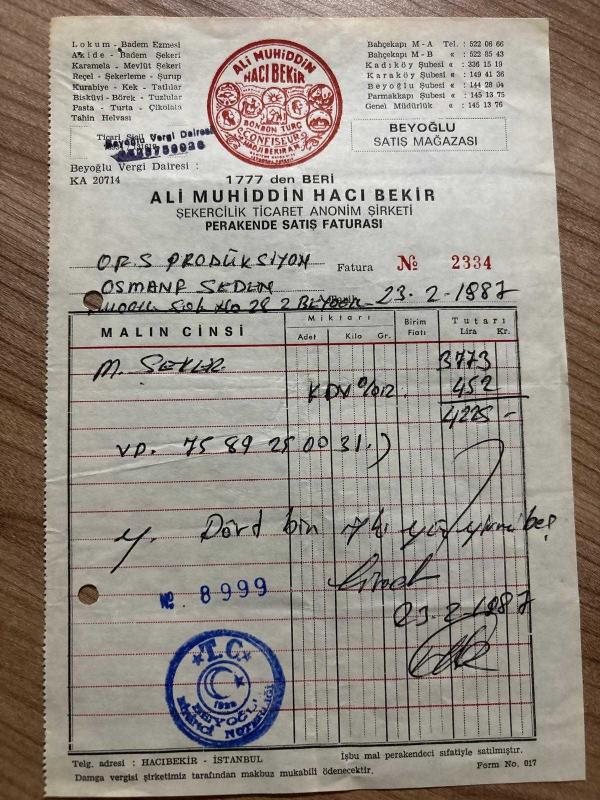 Lokum - Badem Ezmesi
Akide - Badem Şekeri
Karamela - Mevlüt Şekeri
Reçel - Şekerleme - Şurup
Kurabiye - Kek - Tatlılar
Bisküvi - Börek - Tuzlular
Pasta - Turta - Çikolata
Tahin Helvası
Ticari Sicil
Beyoğlu Vergi Dairesi
Beyoğlu Vergi Dairesi :
KA 20714
ALİ MUHİDDİN
HACI BEKİR
BONBON TURC
CONFISEUR
HADJI BEKIR
Bahçekapı M - A Tel. : 522 06 66
Bahçekapı M - B « : 522 85 43
Kadıköy Şubesi « : 336 15 19
Karaköy Şubesi « : 149 41 36
Beyoğlu Şubesi « : 144 28 04
Parmakkapı Şubesi « : 145 13 75
Genel Müdürlük « : 145 13 76
BEYOĞLU
SATIŞ MAĞAZASI
1777 den BERİ
ALİ MUHİDDİN HACI BEKİR
ŞEKERCİLİK TİCARET ANONİM ŞİRKETİ
PERAKENDE SATIŞ FATURASI
ORS PRODÜKSİYON
Fatura № 2334
OSMAN SEDEN
23-2-1987
MALIN CİNSİ
Miktarı
Adet Kilo Gr.
Birim Fiatı
Tutarı
Lira Kr.
M. SEKER 3773
KDV %12. 452
4225 -
VD. 75 89 25 00 31.)
y. Dörd bin iki yüz yirmi beş
23-2-1987
№ 8999
T.C.
BEYOĞLU
BİRİNCİ NOTERLİĞİ
Telg. adresi : HACIBEKİR - İSTANBUL
İşbu mal perakendeci sıfatiyle satılmıştır.
Damga vergisi şirketimiz tarafından makbuz mukabili ödenecektir.
Form No. 017